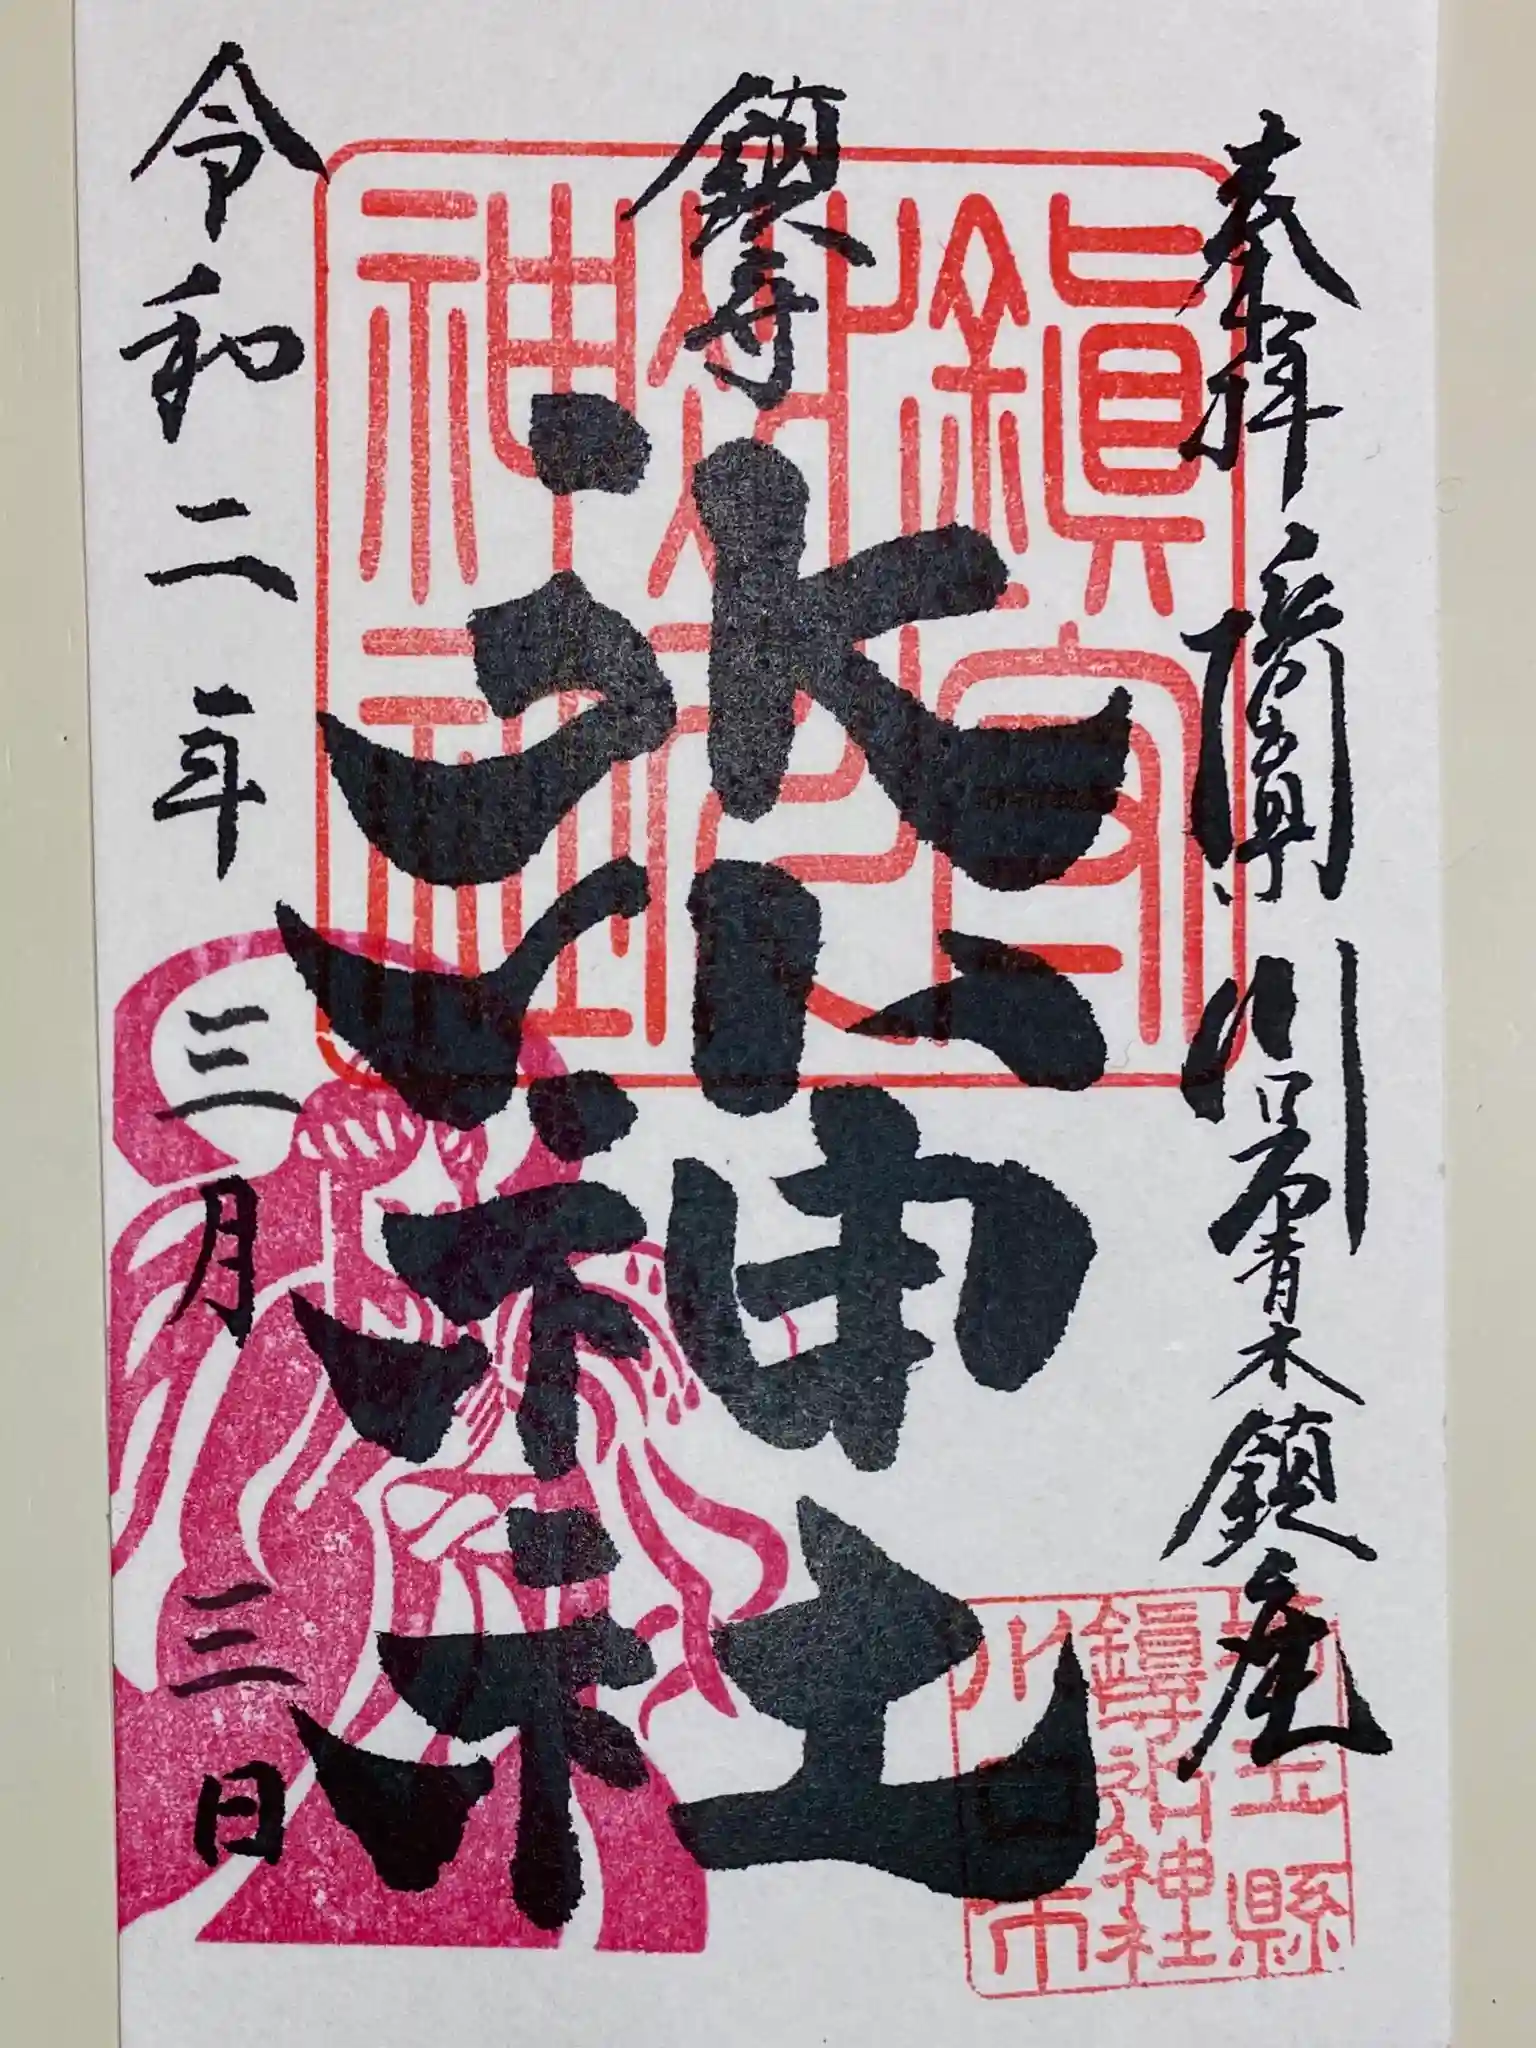 奉拝
川口
青木鎮座
鎮守
氷川神社
令和二年三月三日
鎭守
氷川
神社
埼玉縣
鎭守氷川神社
川口市